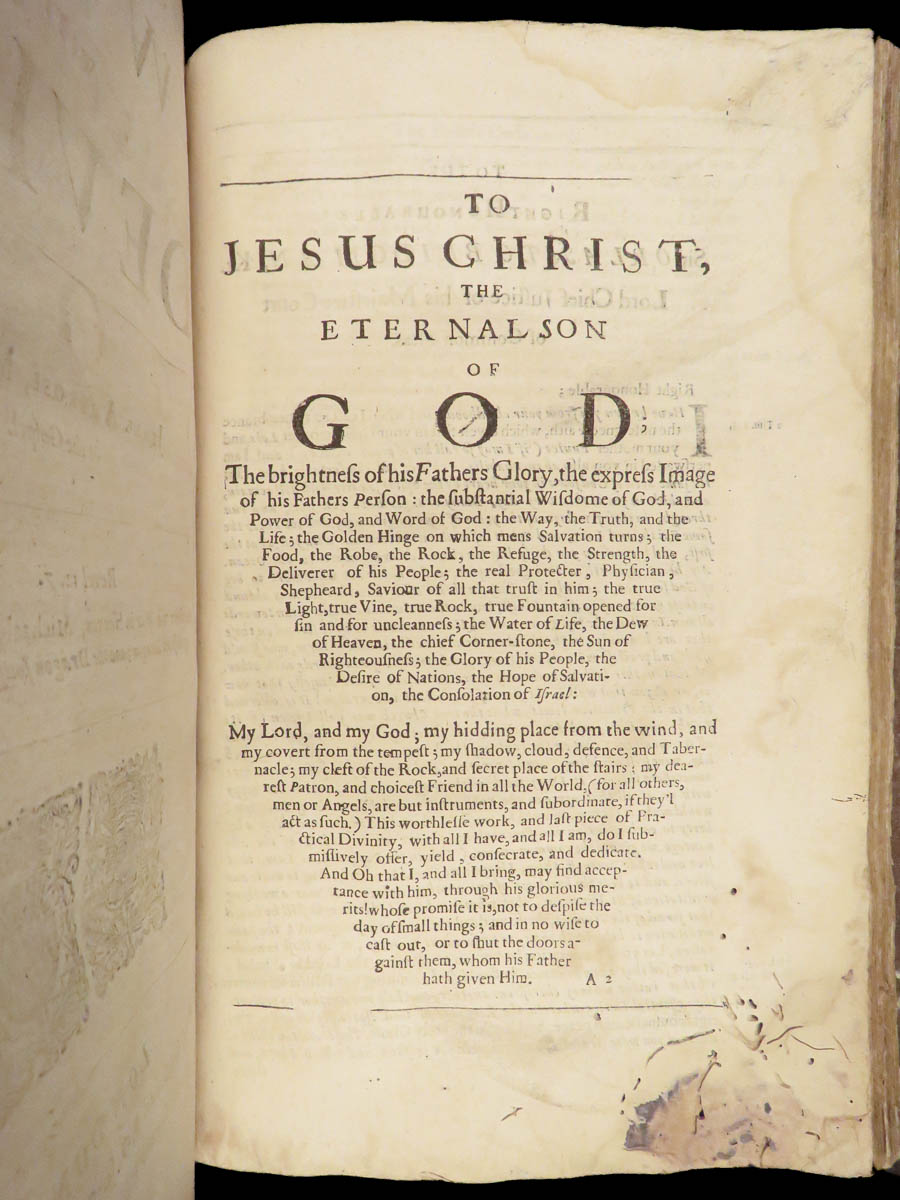 TO
JESUS CHRIST,
THE
ETERNAL SON
OF
GOD,
The brightneſs of his Fathers Glory, the expreſs Image
of his Fathers Perſon : the ſubſtantial Wiſdome of God, and
Power of God, and Word of God : the Way, the Truth, and the
Life; the Golden Hinge on which mens Salvation turns; the
Food, the Robe, the Rock, the Refuge, the Strength, the
Deliverer of his People; the real Protecter, Phyſician,
Shepheard, Saviour of all that truſt in him; the true
Light, true Vine, true Rock, true Fountain opened for
ſin and for uncleanneſs; the Water of Life, the Dew
of Heaven, the chief Corner-ſtone, the Sun of
Righteouſneſs; the Glory of his People, the
Deſire of Nations, the Hope of Salvati-
on, the Conſolation of Iſrael:
My Lord, and my God; my hidding place from the wind, and
my covert from the tempeſt; my ſhadow, cloud, defence, and Taber-
nacle; my cleft of the Rock, and ſecret place of the ſtairs; my dea-
reſt Patron, and choiceſt Friend in all the World, (for all others,
men or Angels, are but inſtruments, and ſubordinate, if they'l
act as ſuch.) This worthleſſe work, and laſt piece of Pra-
ctical Divinity, with all I have, and all I am, do I ſub-
miſſively offer, yield, conſecrate, and dedicate.
And Oh that I, and all I bring, may find accep-
tance with him, through his glorious me-
rits! whoſe promiſe it is, not to deſpiſe the
day of ſmall things; and in no wiſe to
caſt out, or to ſhut the doors a-
gainſt them, whom his Father
hath given Him. A 2